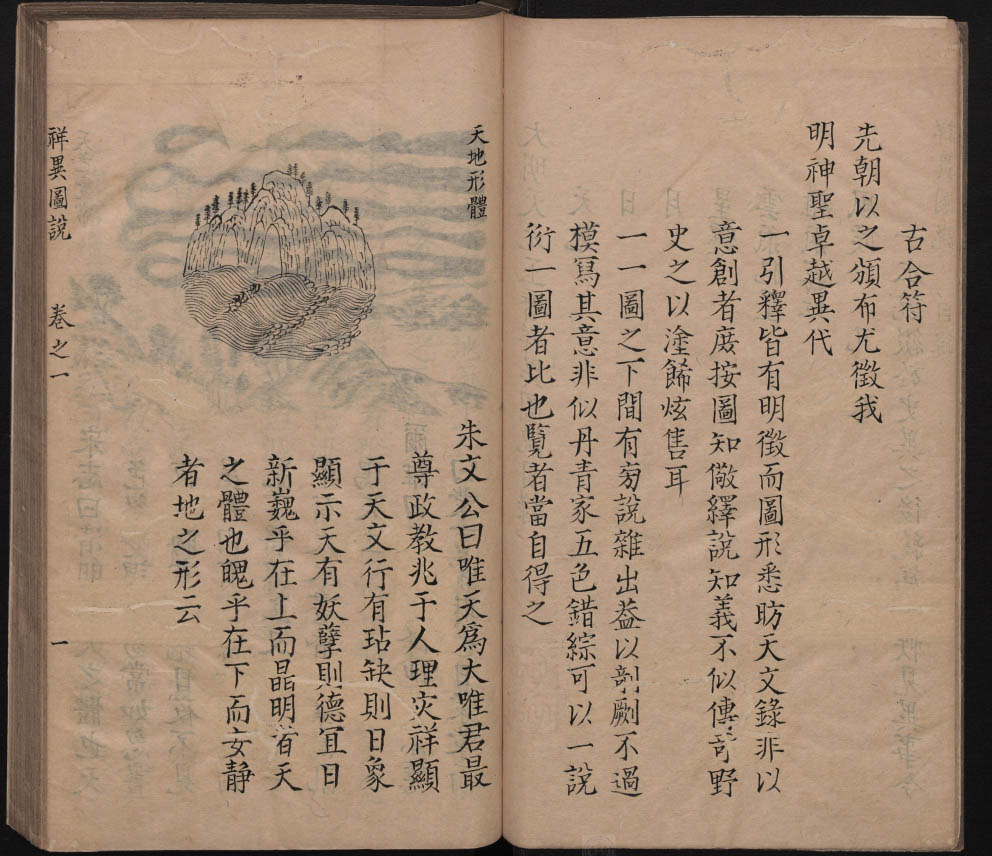 古合符
先朝以之頒布尤徵我
明神聖卓越異代
一引釋皆有明徵而圖形悉昉天文錄非以
意創者庶按圖知儆繹說知義不似傳竒野
史之以塗餙炫售耳
一一圖之下間有旁說雜出葢以剞劂不過
模冩其意非似丹青家五色錯綜可以一說
衍一圖者比也覽者當自得之
天地形體
朱文公曰唯天爲大唯君最
尊政教兆于人理灾祥顯
于天文行有玷缺則日象
顯示天有妖孽則德冝日
新巍乎在上而晶明者天
之體也魄乎在下而安靜
者地之形云
祥異圖說
卷之一
一